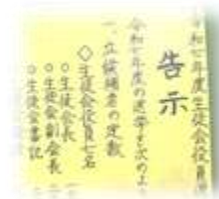 告示
令和七年度生徒会役員
令和七年度の選挙を次のよう
一、立候補者の定数
◇生徒会役員七名
○生徒会長
○生徒会副会長
○生徒会書記